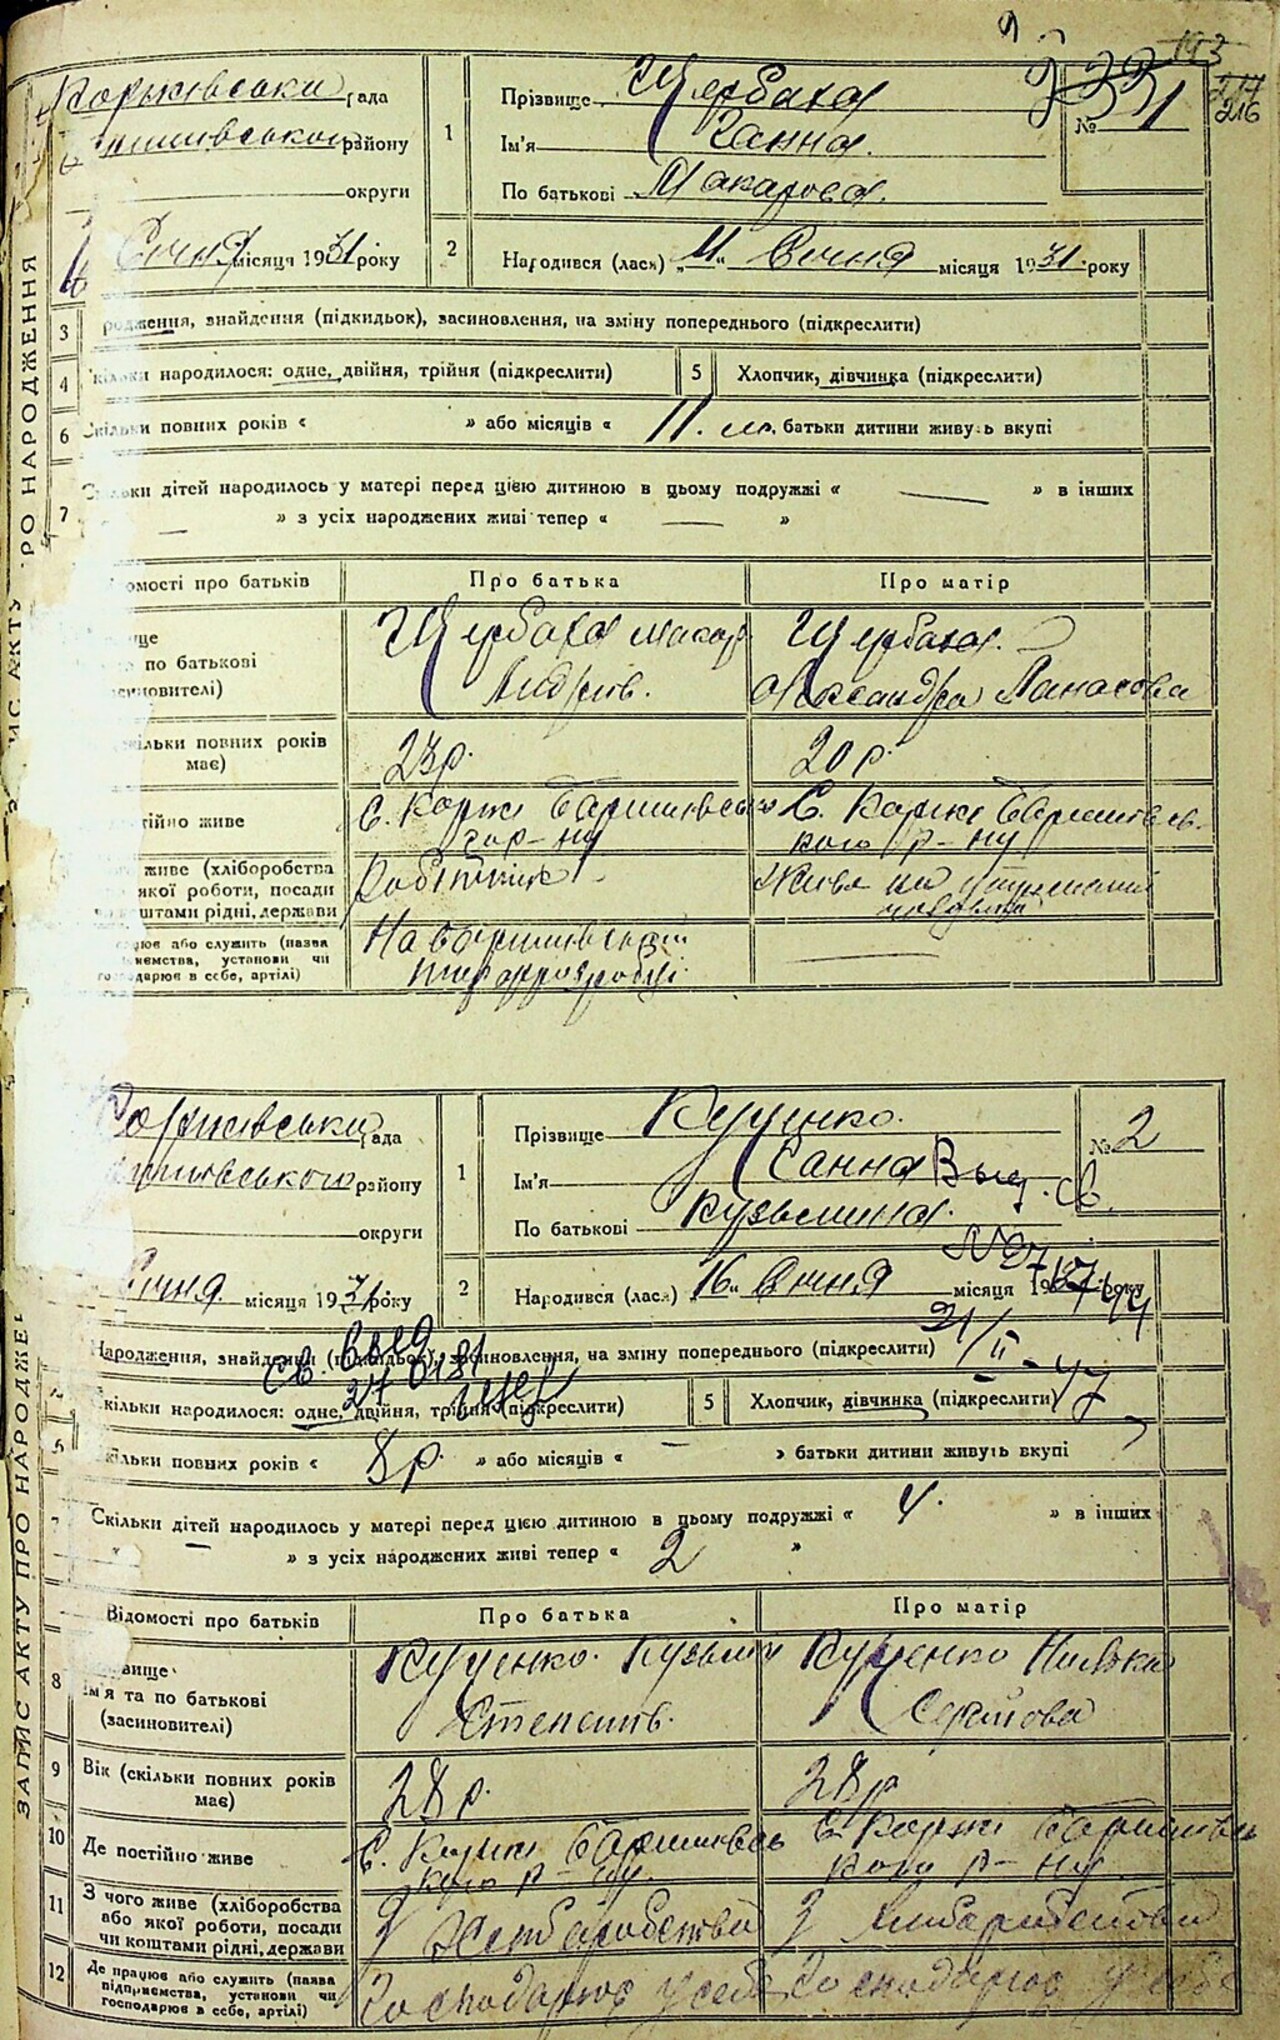 193
217
216
Коржівська рада
району
округи
1
Прізвище Щербаха
Ім'я Ганна
По батькові Макарова
№ 1
Січня місяця 1931 року
2
Народився (лася) „11“ Січня місяця 1931 року
РО НАРОДЖЕННЯ
3
родження, знайдення (підкидьок), засиновлення, на зміну попереднього (підкреслити)
4
кільки народилося: одне, двійня, трійня (підкреслити)
5
Хлопчик, дівчинка (підкреслити)
6
Скільки повних років « » або місяців « 11. м. батьки дитини живуть вкупі
7
Скільки дітей народилось у матері перед цією дитиною в цьому подружжі « — » в інших
— » з усіх народжених живі тепер « — »
омості про батьків
Про батька
Про матір
ище
по батькові
синовителі)
Щербаха Макар
Андріїв.
Щербаха
Олександра Панасова
кільки повних років
має)
23р.
20 р.
стійно живе
С. Коржі Баришівсько
го р-ну
С. Коржі Баришівсь
кого р-ну
живе (хліборобства
якої роботи, посади
штами рідні, держави
Робітник
Живе на утриманні
цює або служить (назва
иємства, установи чи
господарює в себе, артілі)
На Баришівській
—
Коржівська рада
району
округи
1
Прізвище Куценко
Ім'я Ганна
По батькові Кузьмина
№ 2
Січня місяця 1931 року
2
Народився (лася) 16 „ Січня місяця 19 року
21/II - 47
Народження, знайдення (підкидьок), засиновлення, на зміну попереднього (підкреслити)
Св. выд
Скільки народилося: одне, двійня, трійня (підкреслити)
5
Хлопчик, дівчинка (підкреслити)
6
кільки повних років « 8 р. » або місяців « — » батьки дитини живуть вкупі
7
Скільки дітей народилось у матері перед цією дитиною в цьому подружжі « 4. » в інших
« — » з усіх народжених живі тепер « 2 »
ЗАПИС АКТУ ПРО НАРОДЖЕ
Відомості про батьків
Про батька
Про матір
8
звище
Ім'я та по батькові
(засиновителі)
Куценко Кузьма
Степанів.
Куценко
9
Вік (скільки повних років
має)
28 р.
28 р
10
Де постійно живе
С. Коржі Баришівсь
кого р-ну.
С. Коржі Баришівсь
кого р-ну
11
З чого живе (хліборобства
або якої роботи, посади
чи коштами рідні, держави
З Хліборобства
З Хліборобства
12
Де працює або служить (назва
підприємства, установи чи
господарює в себе, артілі)
Господарює у себе
Господарює у себе